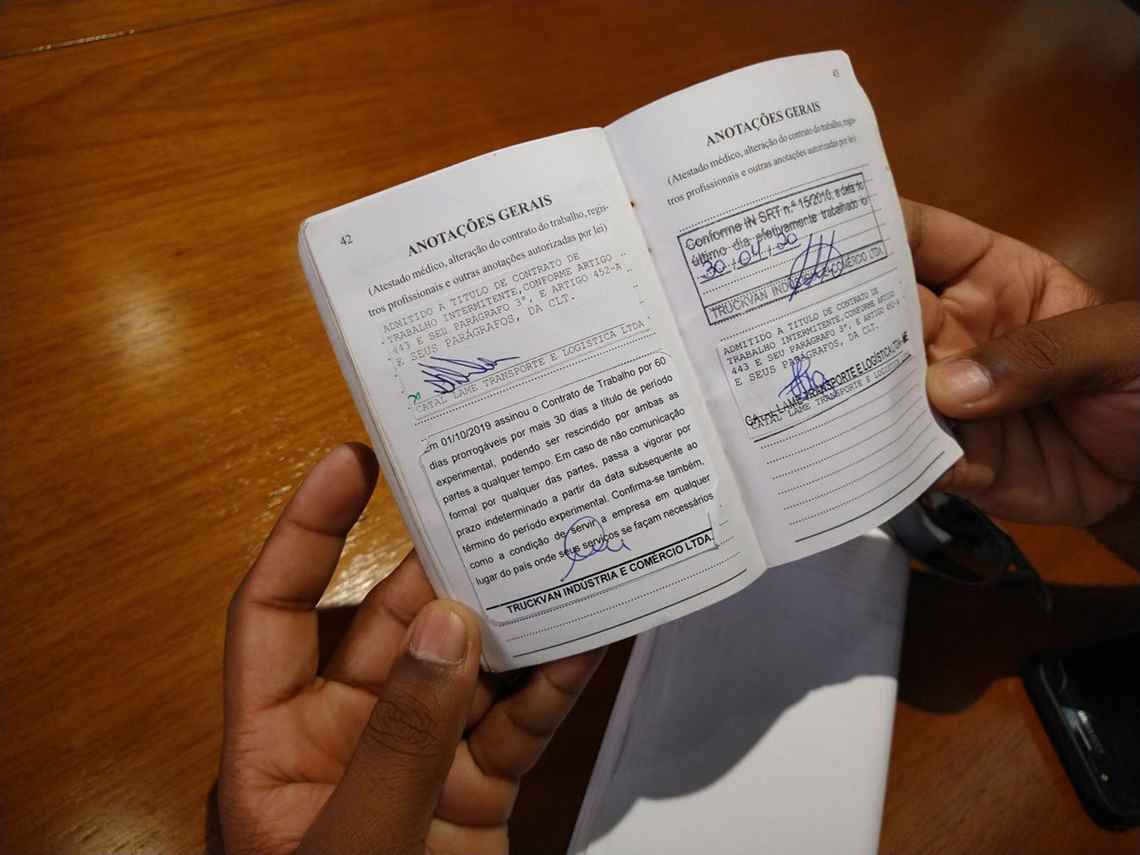 42
ANOTAÇÕES GERAIS
(Atestado médico, alteração do contrato do trabalho, regis-
tros profissionais e outras anotações autorizadas por lei)
ADMITIDO A TITULO DE CONTRATO DE
TRABALHO INTERMITENTE, CONFORME ARTIGO
443 E SEU PARÁGRAFO 3º, E ARTIGO 452-A
E SEUS PARÁGRAFOS, DA CLT.
CATAL LAME TRANSPORTE E LOGÍSTICA LTDA
Em 01/10/2019 assinou o Contrato de Trabalho por 60
dias prorrogáveis por mais 30 dias a título de período
experimental, podendo ser rescindido por ambas as
partes a qualquer tempo. Em caso de não comunicação
formal por qualquer das partes, passa a vigorar por
prazo indeterminado a partir da data subsequente ao
término do período experimental. Confirma-se também,
como a condição de servir a empresa em qualquer
lugar do país onde seus serviços se façam necessários
TRUCKVAN INDUSTRIA E COMÉRCIO LTDA.
43
ANOTAÇÕES GERAIS
(Atestado médico, alteração do contrato do trabalho, regis-
tros profissionais e outras anotações autorizadas por lei)
Conforme IN SRT n.º 15/2010, a data do
último dia efetivamente trabalhado foi
30/04/20
TRUCKVAN INDÚSTRIA E COMÉRCIO LTDA.
ADMITIDO A TITULO DE CONTRATO DE
TRABALHO INTERMITENTE, CONFORME ARTIGO
443 E SEU PARÁGRAFO 3º, E ARTIGO 452-A
E SEUS PARÁGRAFOS, DA CLT.
CATAL LAME TRANSPORTE E LOGÍSTICA LTDA-ME
CATAL LAME TRANSPORTE E LOGÍSTICA